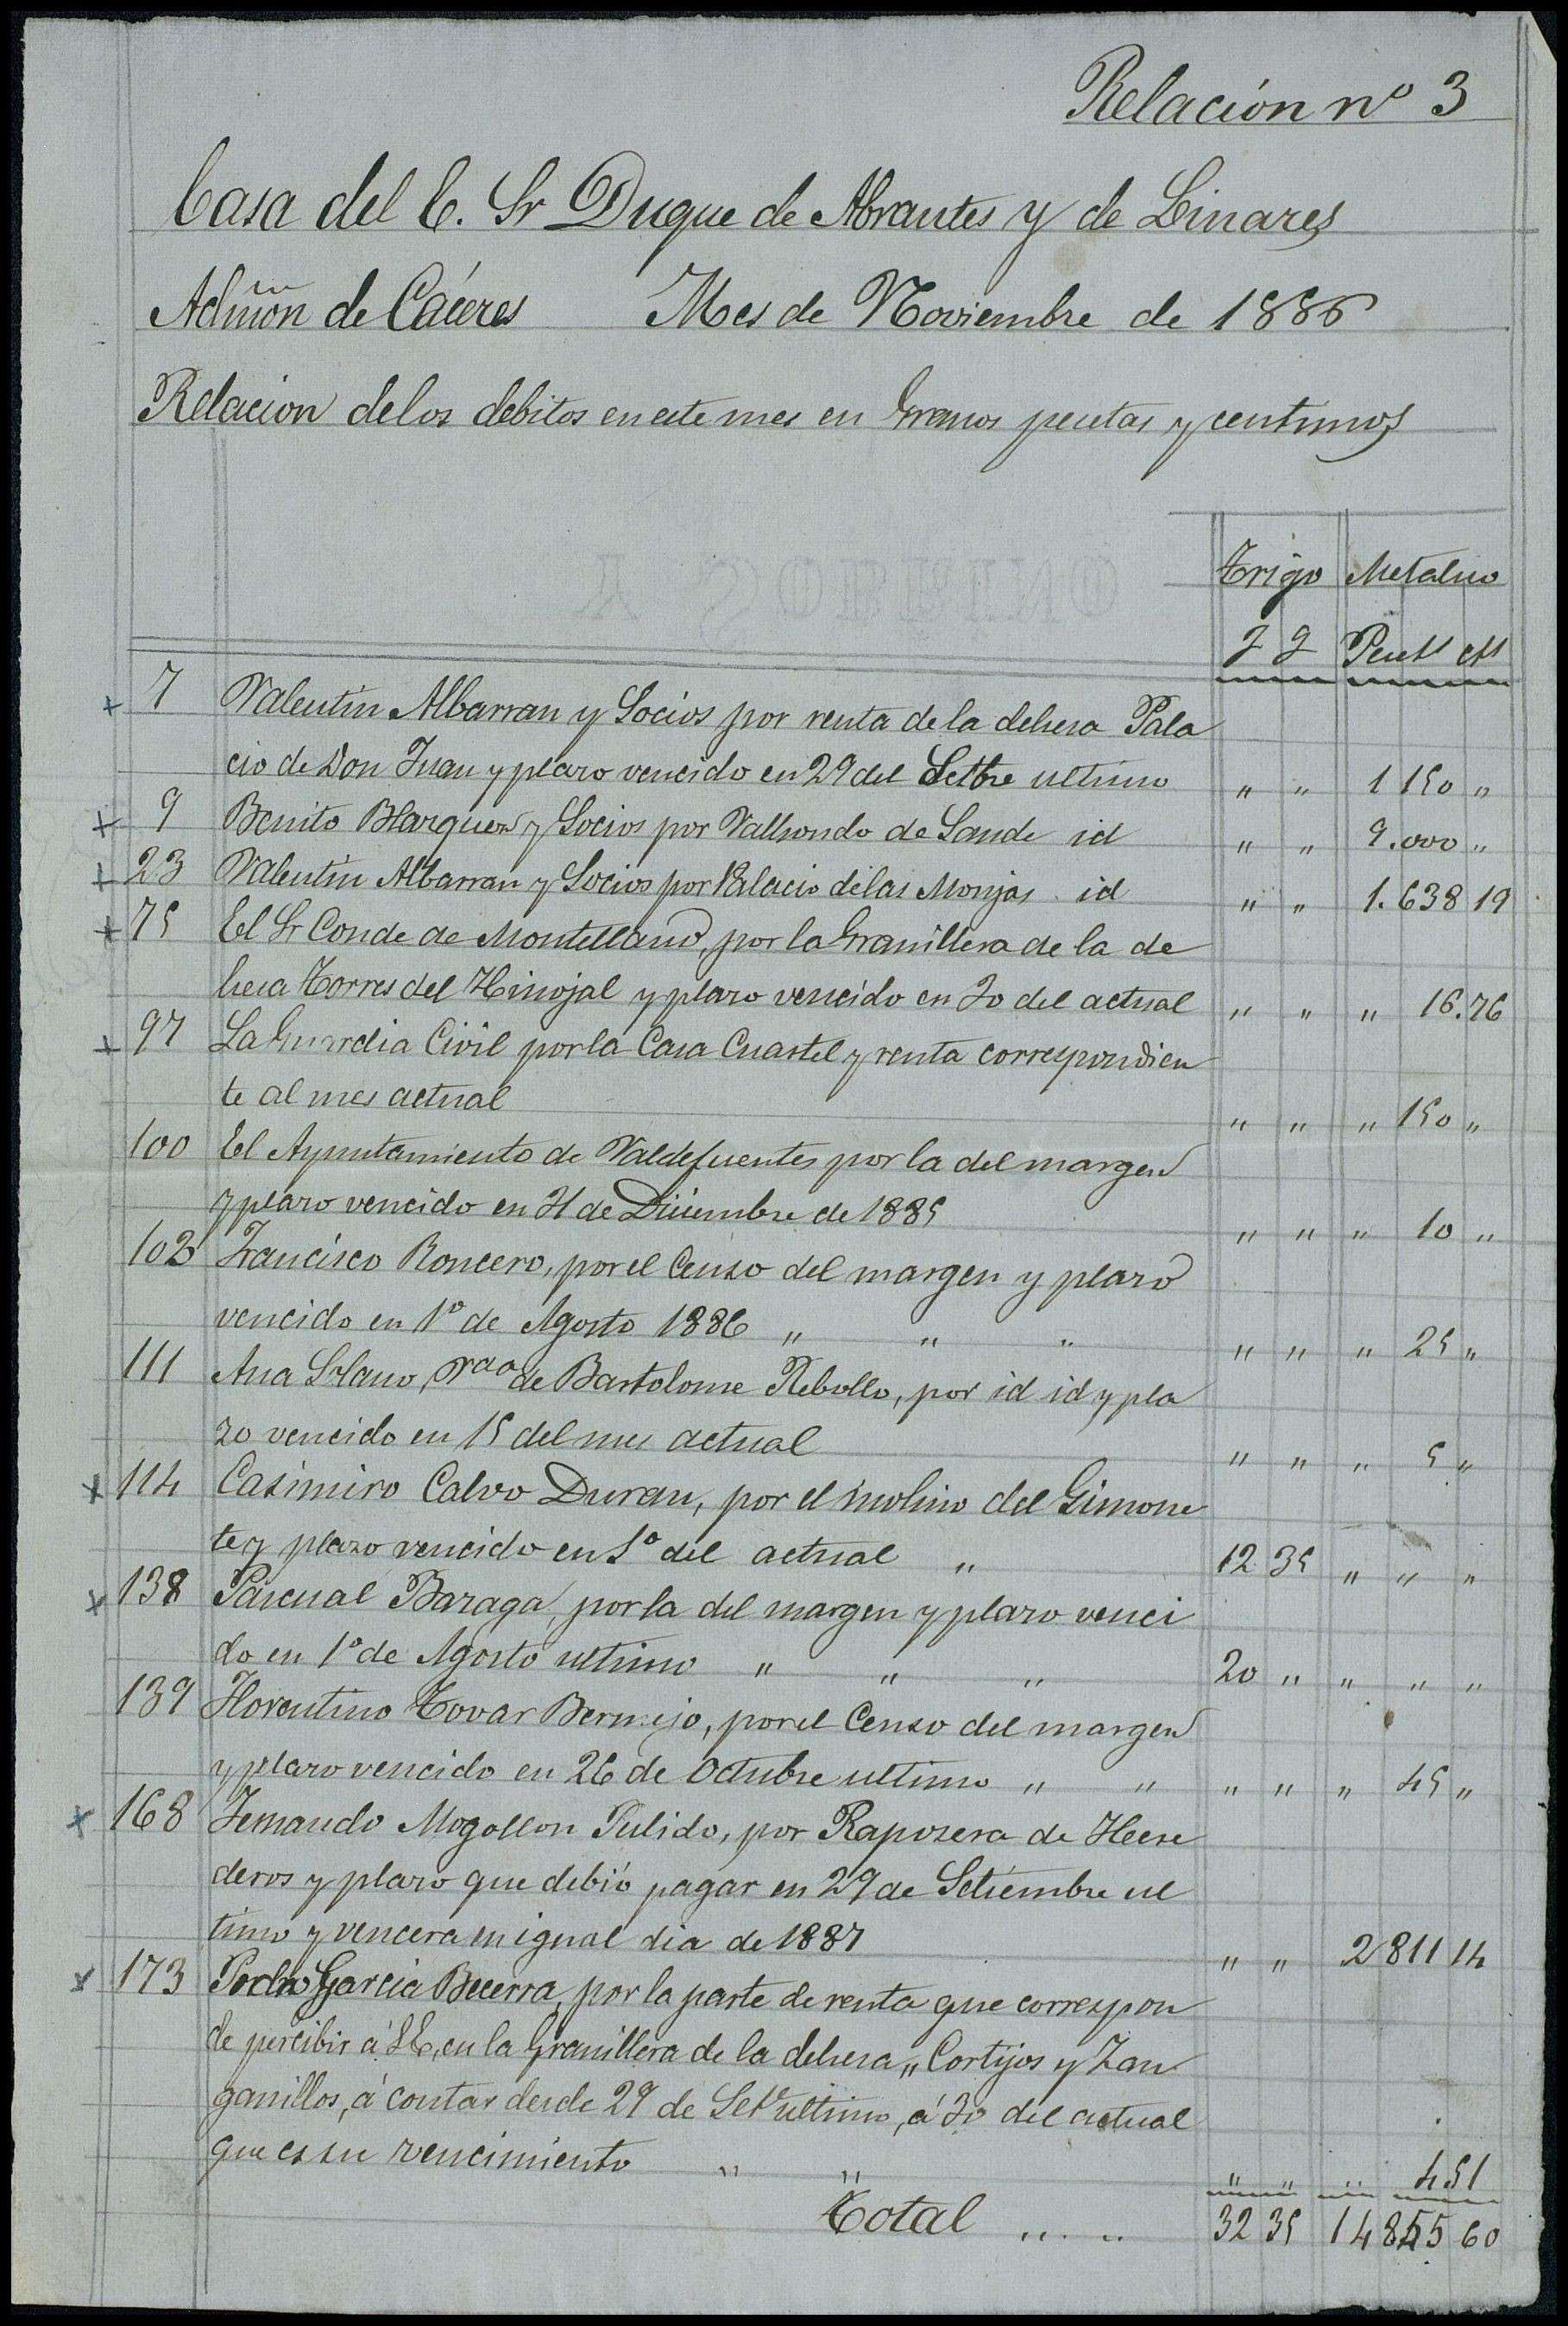 Relación nº 3
Casa del E. Sr Duque de Abrantes y de Linares
Admon de Cáceres Mes de Noviembre de 1886
Relacion delos debitos en este mes en Granos pesetas y centimos
Y SOBRINO
Trigo Metalico
F F Pesets cts
7 Valentin Albarran y Socios por renta de la dehesa Pala
cio de Don Juan y plazo vencido en 29 del Setbre ultimo " " 1 150 "
9 Benito Blazquez y Socios por Valhondo de Sande id " " 9.000 "
23 Valentin Albarran y Socios por Palacio de las Monjas id " " 1.638 19
75 El Sr Conde de Montellano, por la Granillera de la de
hesa Torres del Hinojal y plazo vencido en 30 del actual " " " 16.76
97 La Guardia Civil por la Casa Cuartel y renta correspondien
te al mes actual " " " 150 "
100 El Ayuntamiento de Valdefuentes por la del margen
y plazo vencido en 31 de Diciembre de 1885 " " " 10 "
102 Francisco Roncero, por el Censo del margen y plazo
vencido en 1º de Agosto 1886 " " " " " " 25 "
111 Ana Solano, Vda de Bartolome Rebollo, por id id y pla
zo vencido en 15 del mes actual " " " 5 "
114 Casimiro Calvo Duran, por el molino del Gimone
te y plazo vencido en 1º del actual " 12 35 " " "
138 Pascual Baraga, por la del margen y plazo venci
do en 1º de Agosto ultimo " " " 20 " " " "
139 Florentino Tovar Bermejo, por el Censo del margen
y plazo vencido en 26 de Octubre ultimo " " " " " 45 "
168 Fernando Mogollon Pulido, por Raposera de Here
deros y plazo que debió pagar en 29 de Setiembre ul
timo y vencera en igual dia de 1887 " " 2 811 14
173 Pedro Garcia Becerra, por la parte de renta que correspon
de percibir á S.E, en la Granillera de la dehesa " Cortijos y Zan
ganillos, á contar desde 29 de Set ultimo, á 30 del actual
que es su vencimiento " " " " " 451
Total ..... 32 35 14 855 60